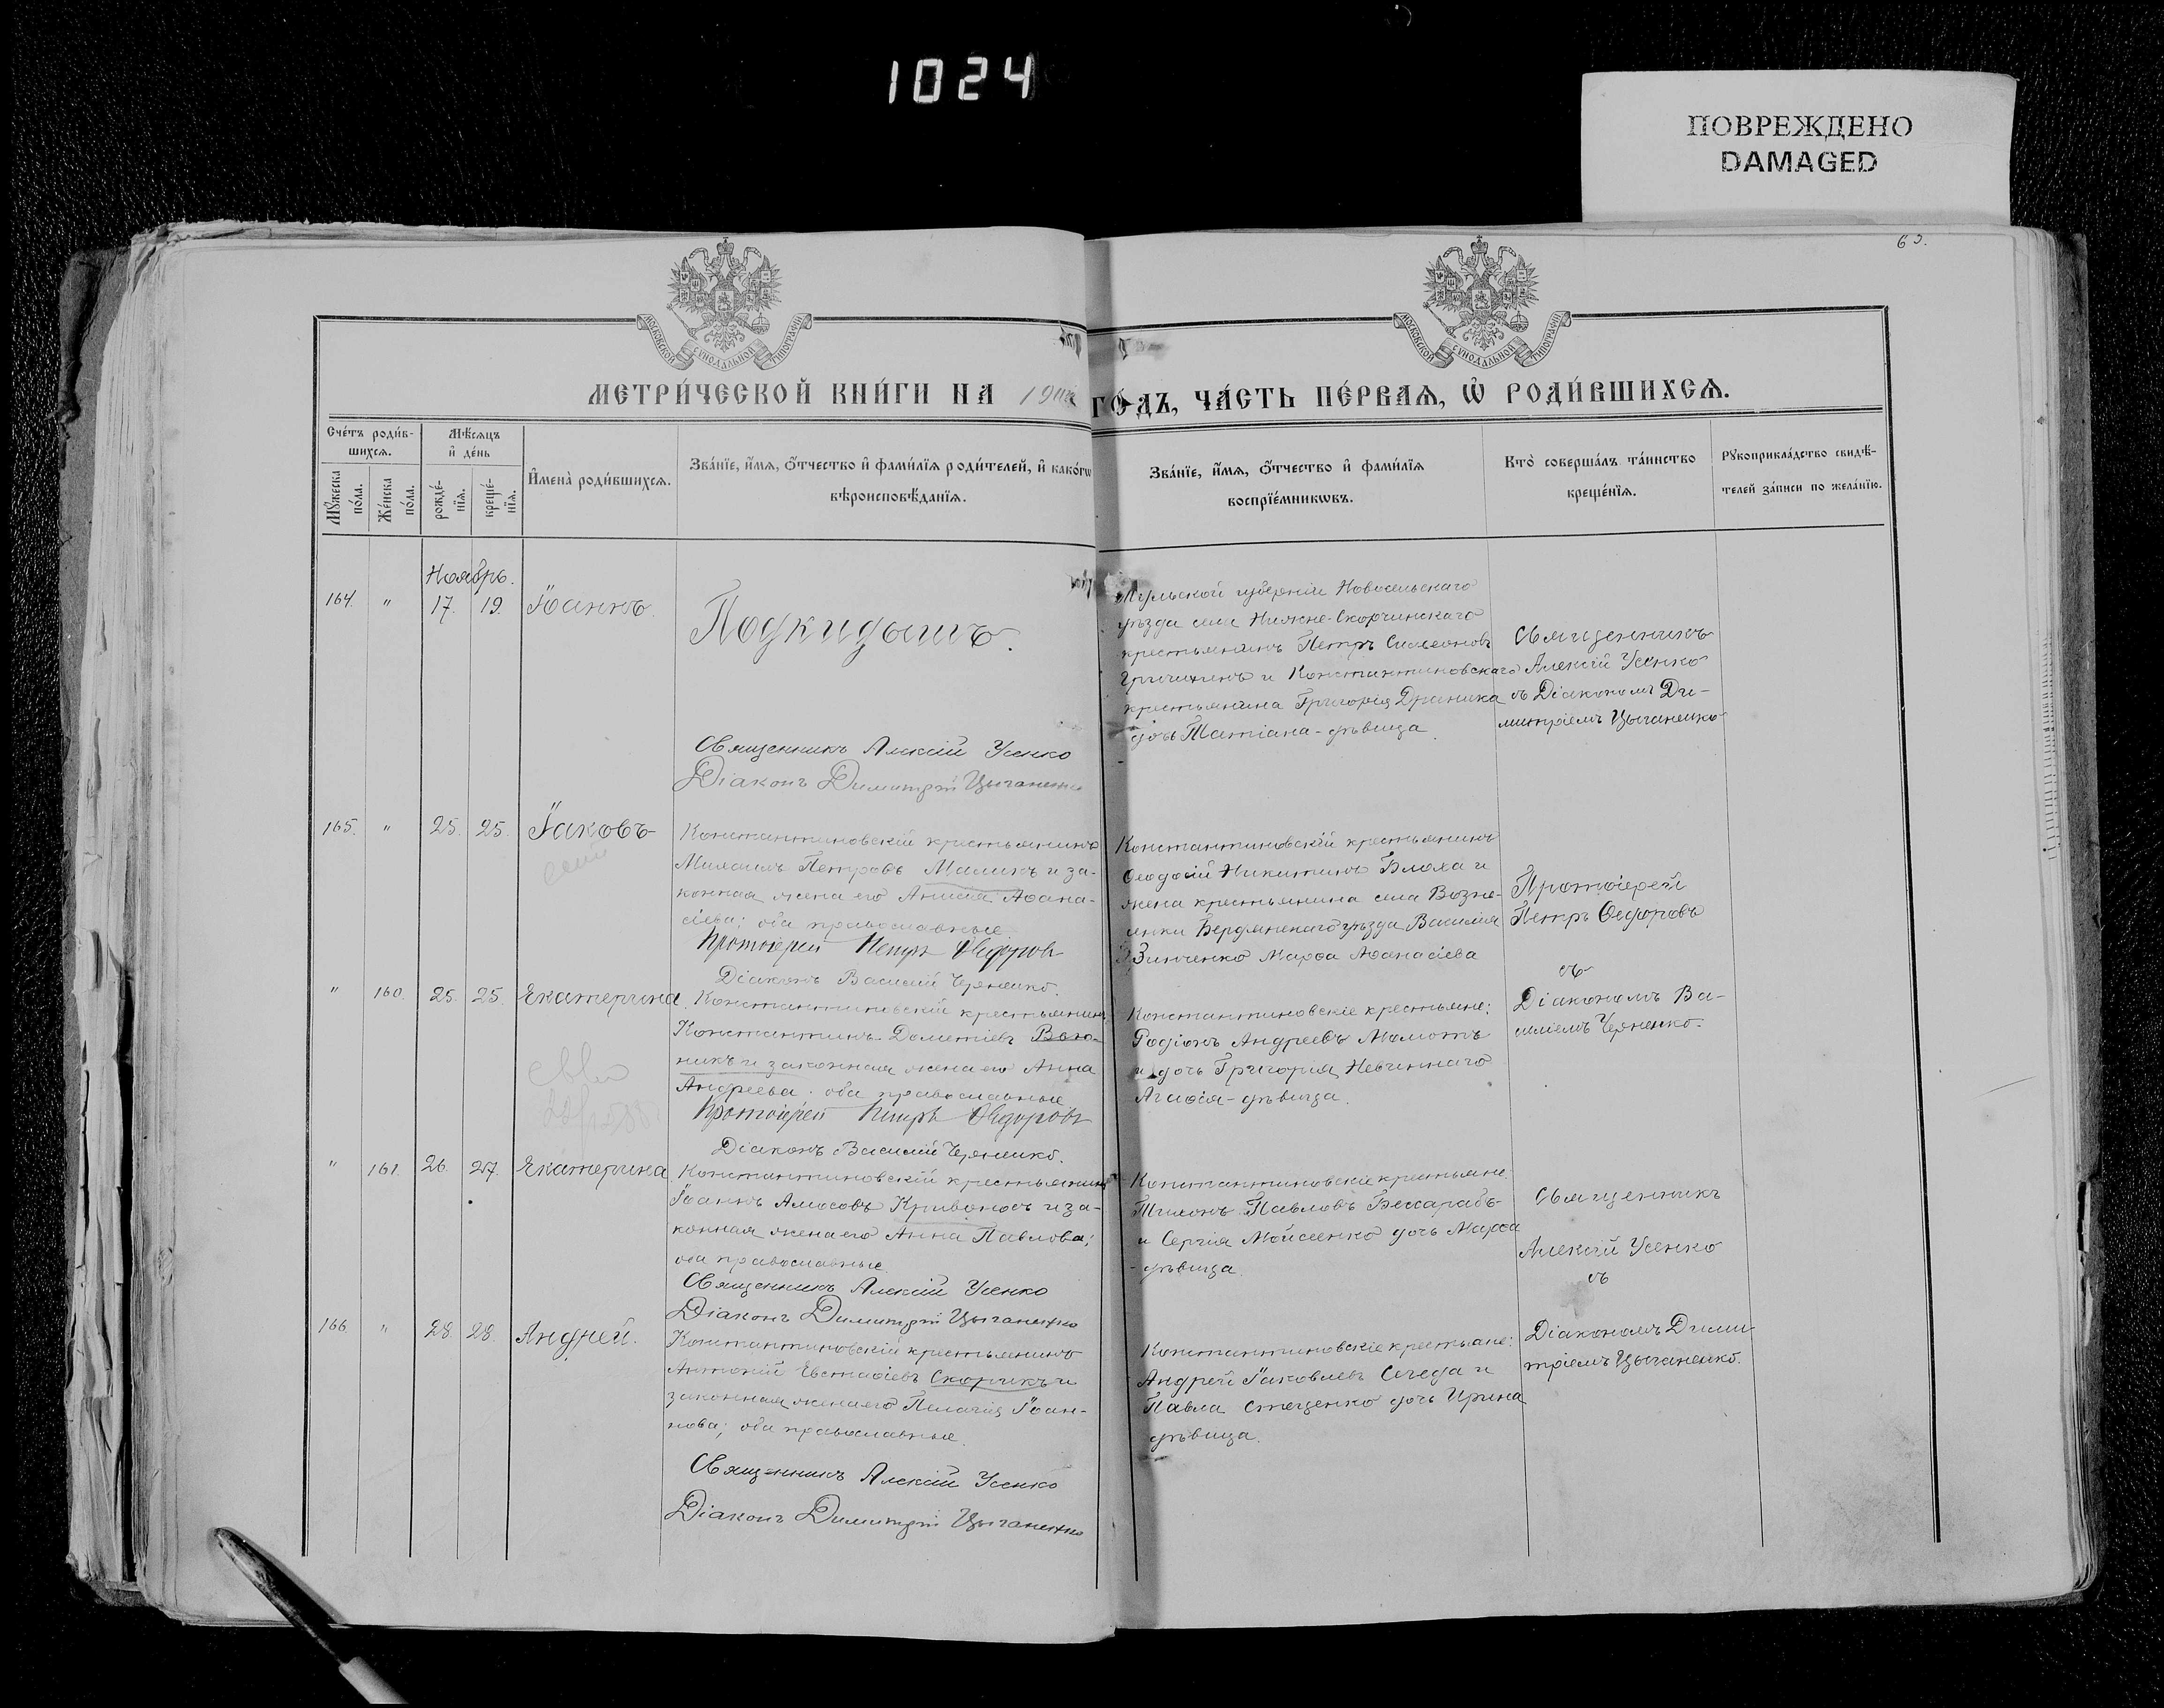 1024
ПОВРЕЖДЕНО
DAMAGED
63.
МОСКОВСКОЙ СѴНОДАЛЬНОЙ ТИПОГРАФІИ
МОСКОВСКОЙ СѴНОДАЛЬНОЙ ТИПОГРАФІИ
МЕТРИ́ЧЕСКОЙ КНИ́ГИ НА
ГО́ДЪ, ЧА́СТЬ ПЕ́РВАѦ, Ѡ҆ РОДИ́ВШИХСѦ.
Сче́тъ роди́в-
шихсѧ.
Мꙋ́жеска по́ла.
Же́нска по́ла.
Мѣ́сѧцъ
и҆ де́нь
рожде́-
нїѧ.
креще́-
нїѧ.
И҆мена̀ роди́вшихсѧ.
Зва́нїе, и҆́мѧ, ѻ҆́тчество и҆ фами́лїѧ роди́телей, и҆ како́гѡ
вѣроисповѣ́данїѧ.
Зва́нїе, и҆́мѧ, ѻ҆́тчество и҆ фами́лїѧ
воспрїе́мникѡвъ.
Кто̀ соверша́лъ та́инство
креще́нїѧ.
Рꙋкоприкла́дство свидѣ́-
телей за́писи по жела́нїю.
Ноябрь.
164. " 17. 19. Іоаннъ.
Подкидышъ.
Священникъ Алексій Усенко
Діаконъ Димитрій Цыганенко
Тульской губерніи Новосильскаго
уѣзда села Нижне-Скорчинскаго
крестьянинъ Петръ Симеоновъ
и Константиновскаго
крестьянина Григорія Драника
дочь Татіана-дѣвица.
Священникъ
Алексій Усенко
съ Діакономъ Ди-
митріемъ Цыганенко
165. " 25. 25. Іаковъ
Константиновскій крестьянинъ
Петровъ Маликъ и за-
конная жена его Анисія Аѳана-
сіева; оба православные.
Протоіерей Петръ Ѳедоровъ
Діаконъ Василій Черненко.
Константиновскій крестьянинъ
Ѳеодосій Никитинъ Блоха и
жена крестьянина села Возне-
сенки Бердянскаго уѣзда Василія
Зинченко Марѳа Аѳанасіева
Протоіерей
Петръ Ѳедоровъ
съ
Діакономъ Ва-
силіемъ Черненко.
" 160. 25. 25. Екатерина
Константиновскій крестьянинъ
Константинъ Дометіевъ
никъ и законная жена его Анна
Андреева; оба православные
Протоіерей Петръ Ѳедоровъ
Діаконъ Василій Черненко.
Константиновскіе крестьяне:
Родіонъ Андреевъ Мамотъ
и дочь Григорія Невиннаго
Агаѳія-дѣвица.
" 161. 26. 27. Екатерина
Константиновскій крестьянинъ
Іоаннъ Амосовъ Кривоносъ и за-
конная жена его Анна Павлова;
оба православные.
Священникъ Алексій Усенко
Діаконъ Димитрій Цыганенко
Константиновскіе крестьяне:
Тихонъ Павловъ Бессарабъ
и Сергія Мойсеенко дочь Марѳа
-дѣвица.
Священникъ
Алексій Усенко
съ
Діакономъ Дими-
тріемъ Цыганенко.
166 " 28. 28. Андрей.
Константиновскій крестьянинъ
Антоній Евстафіевъ Скорикъ и
законная жена его Пелагія Іоан-
нова; оба православные.
Священникъ Алексій Усенко
Діаконъ Димитрій Цыганенко
Константиновскіе крестьяне:
Андрей Іаковлевъ Сегеда и
Павла Стеценко дочь Ирина
дѣвица.